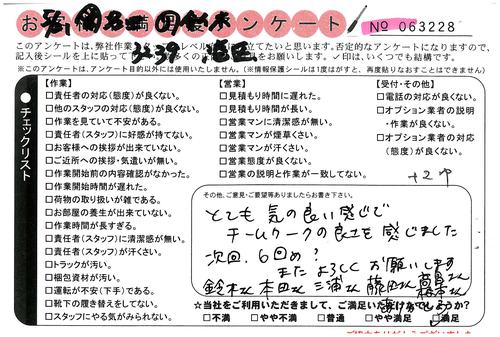 お客様満足度アンケート
No 063228
このアンケートは、弊社作業
記入後シールを上に貼って
※このアンケートは、アンケート目的以外には使用いたしません。(※情報保護シールは1度はがすと、再度貼りなおすことはできません)
チェックリスト
【作業】
□責任者の対応(態度)が良くない。
□他のスタッフの対応(態度)が良くない。
□作業を見ていて不安がある。
□責任者(スタッフ)に好感が持てない。
□お客様への挨拶が出来ていない。
□ご近所への挨拶・気遣いが無い。
□作業開始前の内容確認がなかった。
□作業開始時間が遅れた。
□荷物の取り扱いが雑である。
□お部屋の養生が出来ていない。
□作業時間が長すぎる。
□責任者(スタッフ)に清潔感が無い。
□責任者(スタッフ)が汗くさい。
□トラックが汚い。
□梱包資材が汚い。
□運転が不安(下手)である。
□靴下の履き替えをしてない。
□スタッフにやる気がみられない。
【営業】
□見積もり時間に遅れた。
□見積もり時間が長い。
□営業マンに清潔感が無い。
□営業マンが煙草くさい。
□営業マンが汗くさい。
□営業態度が良くない。
□営業の説明と作業が一致してない。
【受付・その他】
□電話の対応が良くない。
□オプション業者の説明
・作業が良くない。
□オプション業者の対応
(態度)が良くない。
その他、ご意見・ご要望等ありましたらお書き下さい。
とても気の良い感じで
チームワークの良さを感じました
次回、6回め?
またよろしくお願いします
鈴木さん 本田さん 三浦さん 藤田さん
☆当社をご利用いただきまして、ご満足いただけたでしょうか?
□不満 □やや不満 □普通 □やや満足 □満足